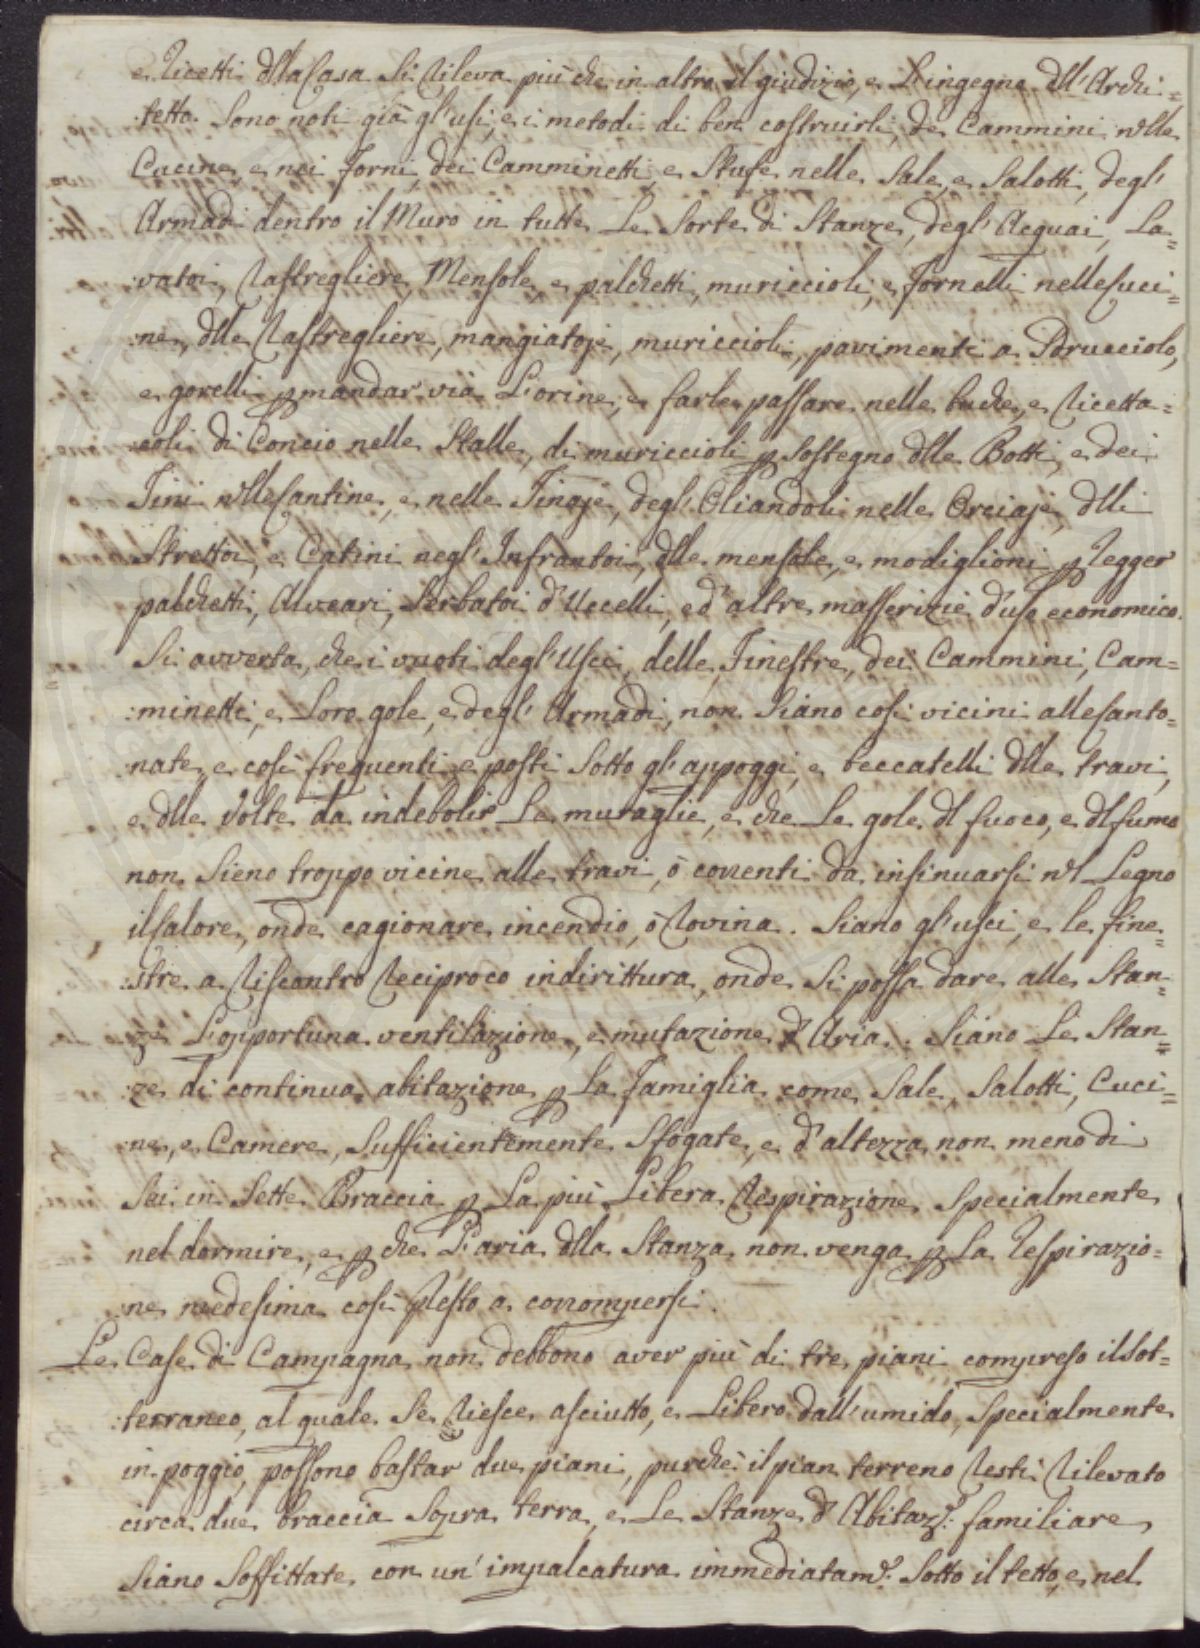 e ricetti dlla Casa si rileva più che in altro il giudizio, e L'ingegno dll' Archi=
tetto. Sono noti già gl'usi, e i metodi di ben costruirli, de Cammini nlle
Cucine, e nei forni, dei Camminetti, e Stufe nelle Sale, e Salotti, degl'
Armadi dentro il Muro in tutte Le Sorte di Stanze, degl' Acquai, La=
:vatoi, rastregliere, Mensole, e palchetti, muriccioli, e fornelli nelle Cuci=
:ne, dlle rastregliere, mangiatoje, muriccioli, pavimenti a Sdrucciolo,
e gorelli p mandar via L'orine, e farle passare nelle buche, e ricetta=
:coli di Concio nelle Stalle, di muriccioli p Sostegno dlle Botti, e dei
Tini nlle Cantine, e nelle Tinaje, degl' Oliandoli nelle Orciaje, dlli
Strettoi, e Catini negl' Infrantoi, dlle mensole, e modiglioni p regger
palchetti, Alveari, Serbatoi d'Uccelli, ed altre masserizie d'uso economico.
Si avverta, che i vuoti degl'Usci, delle Finestre, dei Cammini, Cam=
:minetti, e Loro gole, e degl' Armadi, non Siano così vicini alle Canto=
:nate, e così frequenti, e posti Sotto gl' appoggi, e beccatelli dlle travi,
e dlle Volte da indebolir Le muraglie, e che Le gole dl fuoco, e dl fumo
non Sieno troppo vicine alle travi, ò correnti da insinuarsi nl Legno
il Calore, onde cagionare incendio, ò rovina. Siano gl'usci, e le fine=
:stre a riscontro reciproco indirittura, onde Si possa dare alle Stan=
:ze L'opportuna ventilazione, e mutazione d'Aria. Siano Le Stan=
:ze di continua abitazione p La Famiglia come Sale, Salotti, Cuci=
:ne, e Camere, Sufficientemente Sfogate, e d'altezza non meno di
Sei in Sette Braccia p La più Libera respirazione Specialmente
nel dormire, e p che L'aria dlla Stanza non venga p La respirazio=
:ne medesima così presto a corrompersi.
Le Case di Campagna non debbono aver più di tre piani compreso il Sot=
:terraneo, al quale Se riesce asciutto, e Libero dall'umido, Specialmente
in poggio, possono bastar due piani, purchè il pian terreno resti rilevato
circa due braccia Sopra terra, e Le Stanze d'Abitaz.e familiare
Siano Soffittate con un' impalcatura immediatam.e Sotto il tetto, e nel